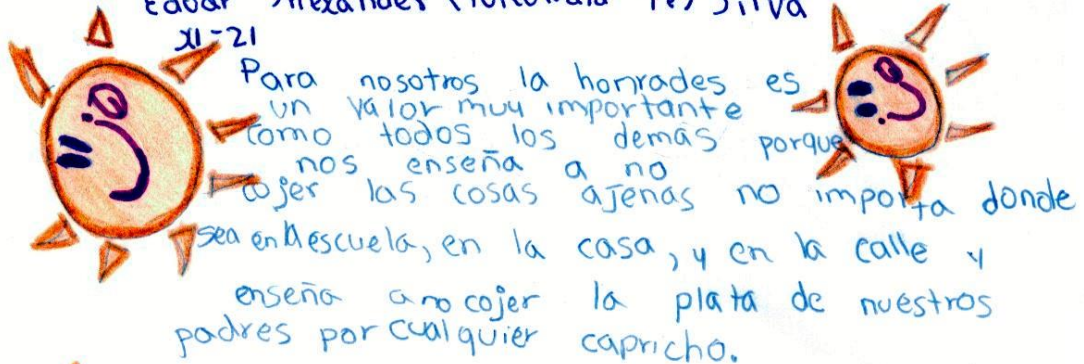 Edgar Alexander Silva
XI-21
Para nosotros la honrades es
un valor muy importante
como todos los demás porque
nos enseña a no
cojer las cosas ajenas no importa donde
sea en la escuela, en la casa, y en la calle y
enseña a no cojer la plata de nuestros
padres por cualquier capricho.